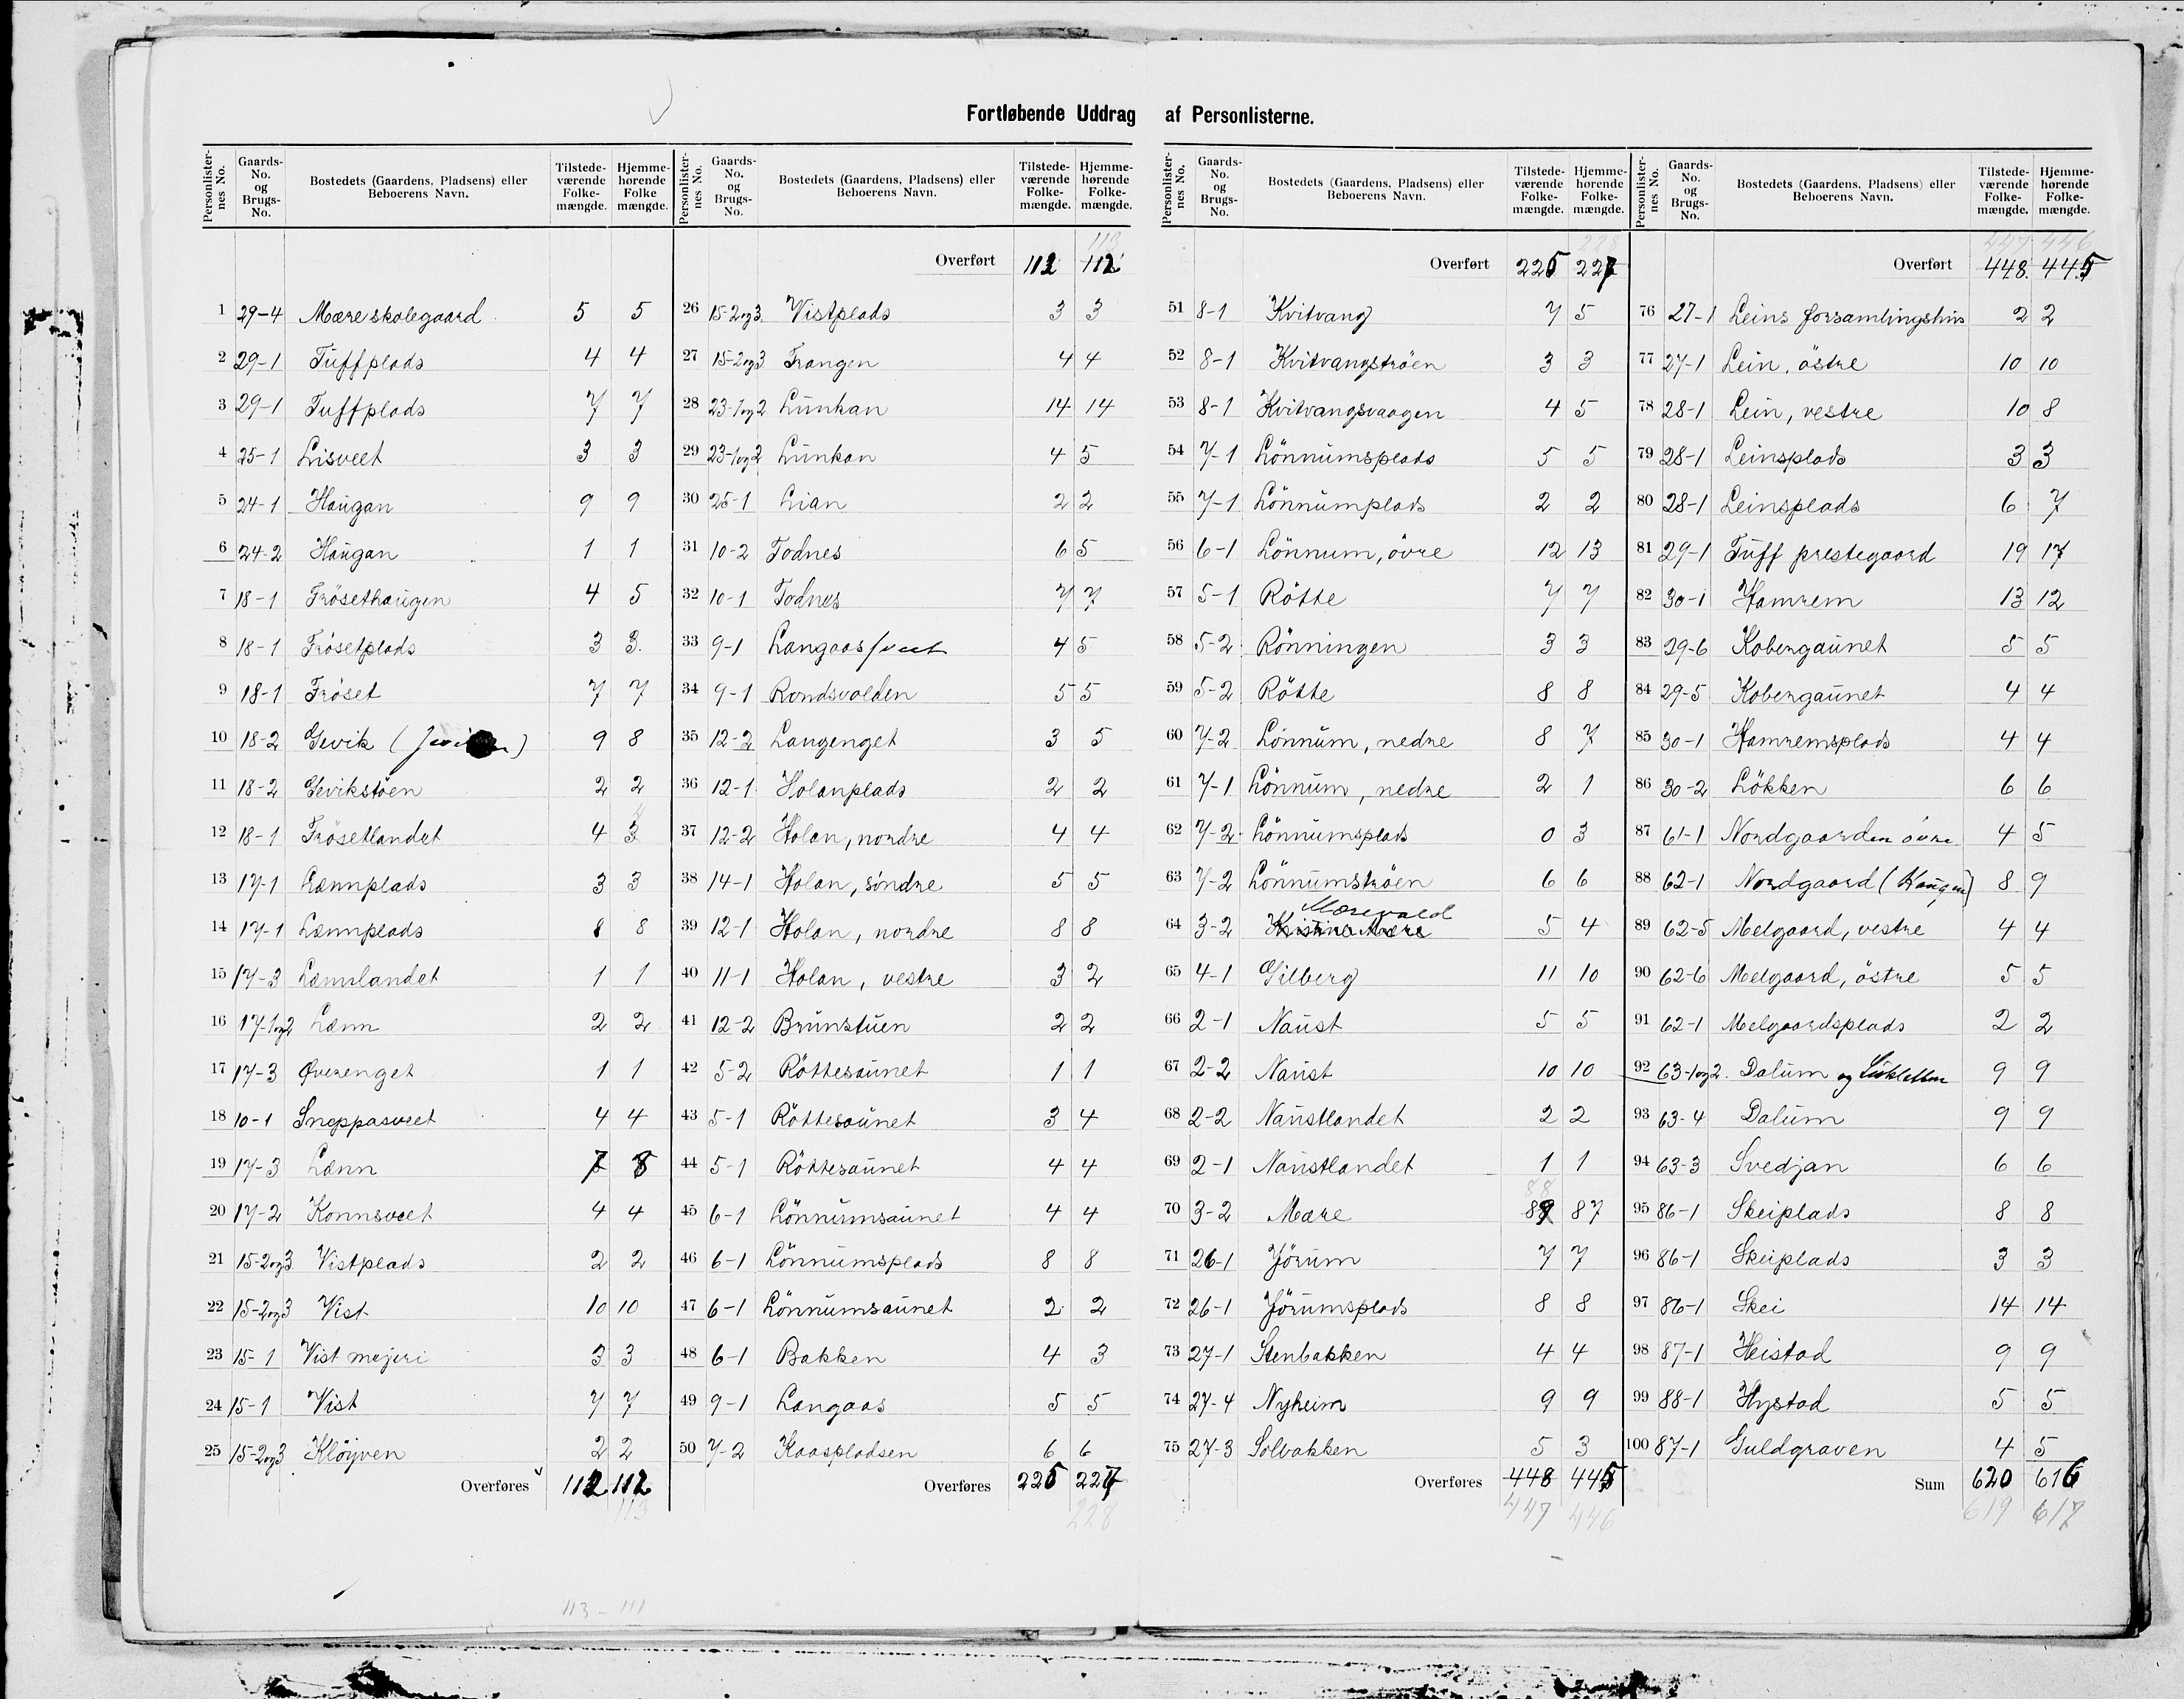 Fortløbende Uddrag af Personlisterne.
Personlister-nes No. Gaards-No. og Brugs-No. Bostedets (Gaardens, Pladsens) eller Beboerens Navn. Tilstede-værende Folke-mængde. Hjemme-hørende Folke mængde.
1 29-4 Mære skolegaard 5 5
2 29-1 Tuffplads 4 4
3 29-1 Tuffplads 7 7
4 25-1 Lisveet 3 3
5 24-1 Haugan 9 9
6 24-2 Haugan 1 1
7 18-1 Frösethaugen 4 5
8 18-1 Frösetplads 3 3.
9 18-1 Fröset 7 7
10 18-2 Gevik ( 9 8
11 18-2 Gevikstöen 2 2
12 18-1 Frösetlandet 4 3
13 17-1 Lænnplads 3 3
14 17-1 Lænnplads 8 8
15 17-3 Lænnlandet 1 1
16 17-1og2 Lænn 2 2
17 17-3 Øverenget 1 1
18 10-1 Sneppasveet 4 4
19 17-3 Lænn 7 8
20 17-2 Konnsveet 4 4
21 15-2og3 Vistplads 2 2
22 15-2og3 Vist 10 10
23 15-1 Vist mejeri 3 3
24 15-1 Vist 7 7
25 15-2og3 Klöyven 2 2
Overføres 112 112
113
113 - 111
Personlister-nes No. Gaards-No. og Brugs-No. Bostedets (Gaardens, Pladsens) eller Beboerens Navn. Tilstede-værende Folke-mængde. Hjemme-hørende Folke-mængde.
113
Overført 112 112
26 15-2og3 Vistplads 3 3
27 15-2og3 Trangen 4 4
28 23-1og2 Lunkan 14 14
29 23-1og2 Lunkan 4 5
30 25-1 Lian 2 2
31 10-2 Todnes 6 5
32 10-1 Todnes 7 7
33 9-1 Langaassveet 4 5
34 9-1 Rondsvolden 5 5
35 12-2 Langenget 3 5
36 12-1 Holanplads 2 2
37 12-2 Holan, nordre 4 4
38 14-1 Holan, söndre 5 5
39 12-1 Holan, nordre 8 8
40 11-1 Holan, vestre 3 2
41 12-2 Brunstuen 2 2
42 5-2 Röttesaunet 1 1
43 5-1 Röttesaunet 3 4
44 5-1 Röttesaunet 4 4
45 6-1 Lönnumsaunet 4 4
46 6-1 Lönnumsplads 8 8
47 6-1 Lönnumsaunet 2 2
48 6-1 Bakken 4 3
49 9-1 Langaas 5 5
50 7-2 Kaaspladsen 6 6
Overføres 225 227
228
Personlister-nes No. Gaards-No. og Brugs-No. Bostedets (Gaardens, Pladsens) eller Beboerens Navn. Tilstede-værende Folke-mængde. Hjemme-hørende Folke-mængde.
228
Overført 225 227
51 8-1 Kvitvang 7 5
52 8-1 Kvitvangströen 3 3
53 8-1 Kvitvangsvaagen 4 5
54 7-1 Lönnumsplads 5 5
55 7-1 Lönnumplads 2 2
56 6-1 Lönnum, övre 12 13
57 5-1 Rötte 7 7
58 5-2 Rönningen 3 3
59 5-2 Rötte 8 8
60 7-2 Lönnum, nedre 8 7
61 7-1 Lönnum, nedre 2 1
62 7-2 Lönnumsplads 0 3
63 7-2 Lönnumströen 6 6
Mærevald
64 3-2 Kristine Mære 5 4
65 4-1 Gilberg 11 10
66 2-1 Naust 5 5
67 2-2 Naust 10 10
68 2-2 Naustlandet 2 2
69 2-1 Naustlandet 1 1
88
70 3-2 Mære 89 87
71 26-1 Jörum 7 7
72 26-1 Jörumsplads 8 8
73 27-1 Stenbakken 4 4
74 27-4 Nyheim 9 9
75 27-3 Solbakken 5 3
Overføres 448 445
447 446
Personlister-nes No. Gaards-No. og Brugs-No. Bostedets (Gaardens, Pladsens) eller Beboerens Navn. Tilstede-værende Folke-mængde. Hjemme-hørende Folke-mængde.
447 446
Overført 448. 445
76 27-1 Leins forsamlingshus 2 2
77 27-1 Lein, östre 10 10
78 28-1 Lein, vestre 10 8
79 28-1 Leinsplads 3 3
80 28-1 Leinsplads 6 7
81 29-1 Tuff prestegaard 19 17
82 30-1 Hamrem 13 12
83 29-6 Kobergaunet 5 5
84 29-5 Kobergaunet 4 4
85 30-1 Hamremsplads 4 4
86 30-2 Lökken 6 6
87 61-1 Nordgaarden övre 4 5
88 62-1 Nordgaard (Haugen) 8 9
89 62-5 Melgaard, vestre 4 4
90 62-6 Melgaard, östre 5 5
91 62-1 Melgaardsplads 2 2
92 63-1og2. Dalum og 9 9
93 63-4 Dalum 9 9
94 63-3 Svedjan 6 6
95 86-1 Skeiplads 8 8
96 86-1 Skeiplads 3 3
97 86-1 Skei 14 14
98 87-1 Heistad 9 9
99 88-1 Hystad 5 5
100 87-1 Guldgraven 4 5
Sum 620 616
619 617